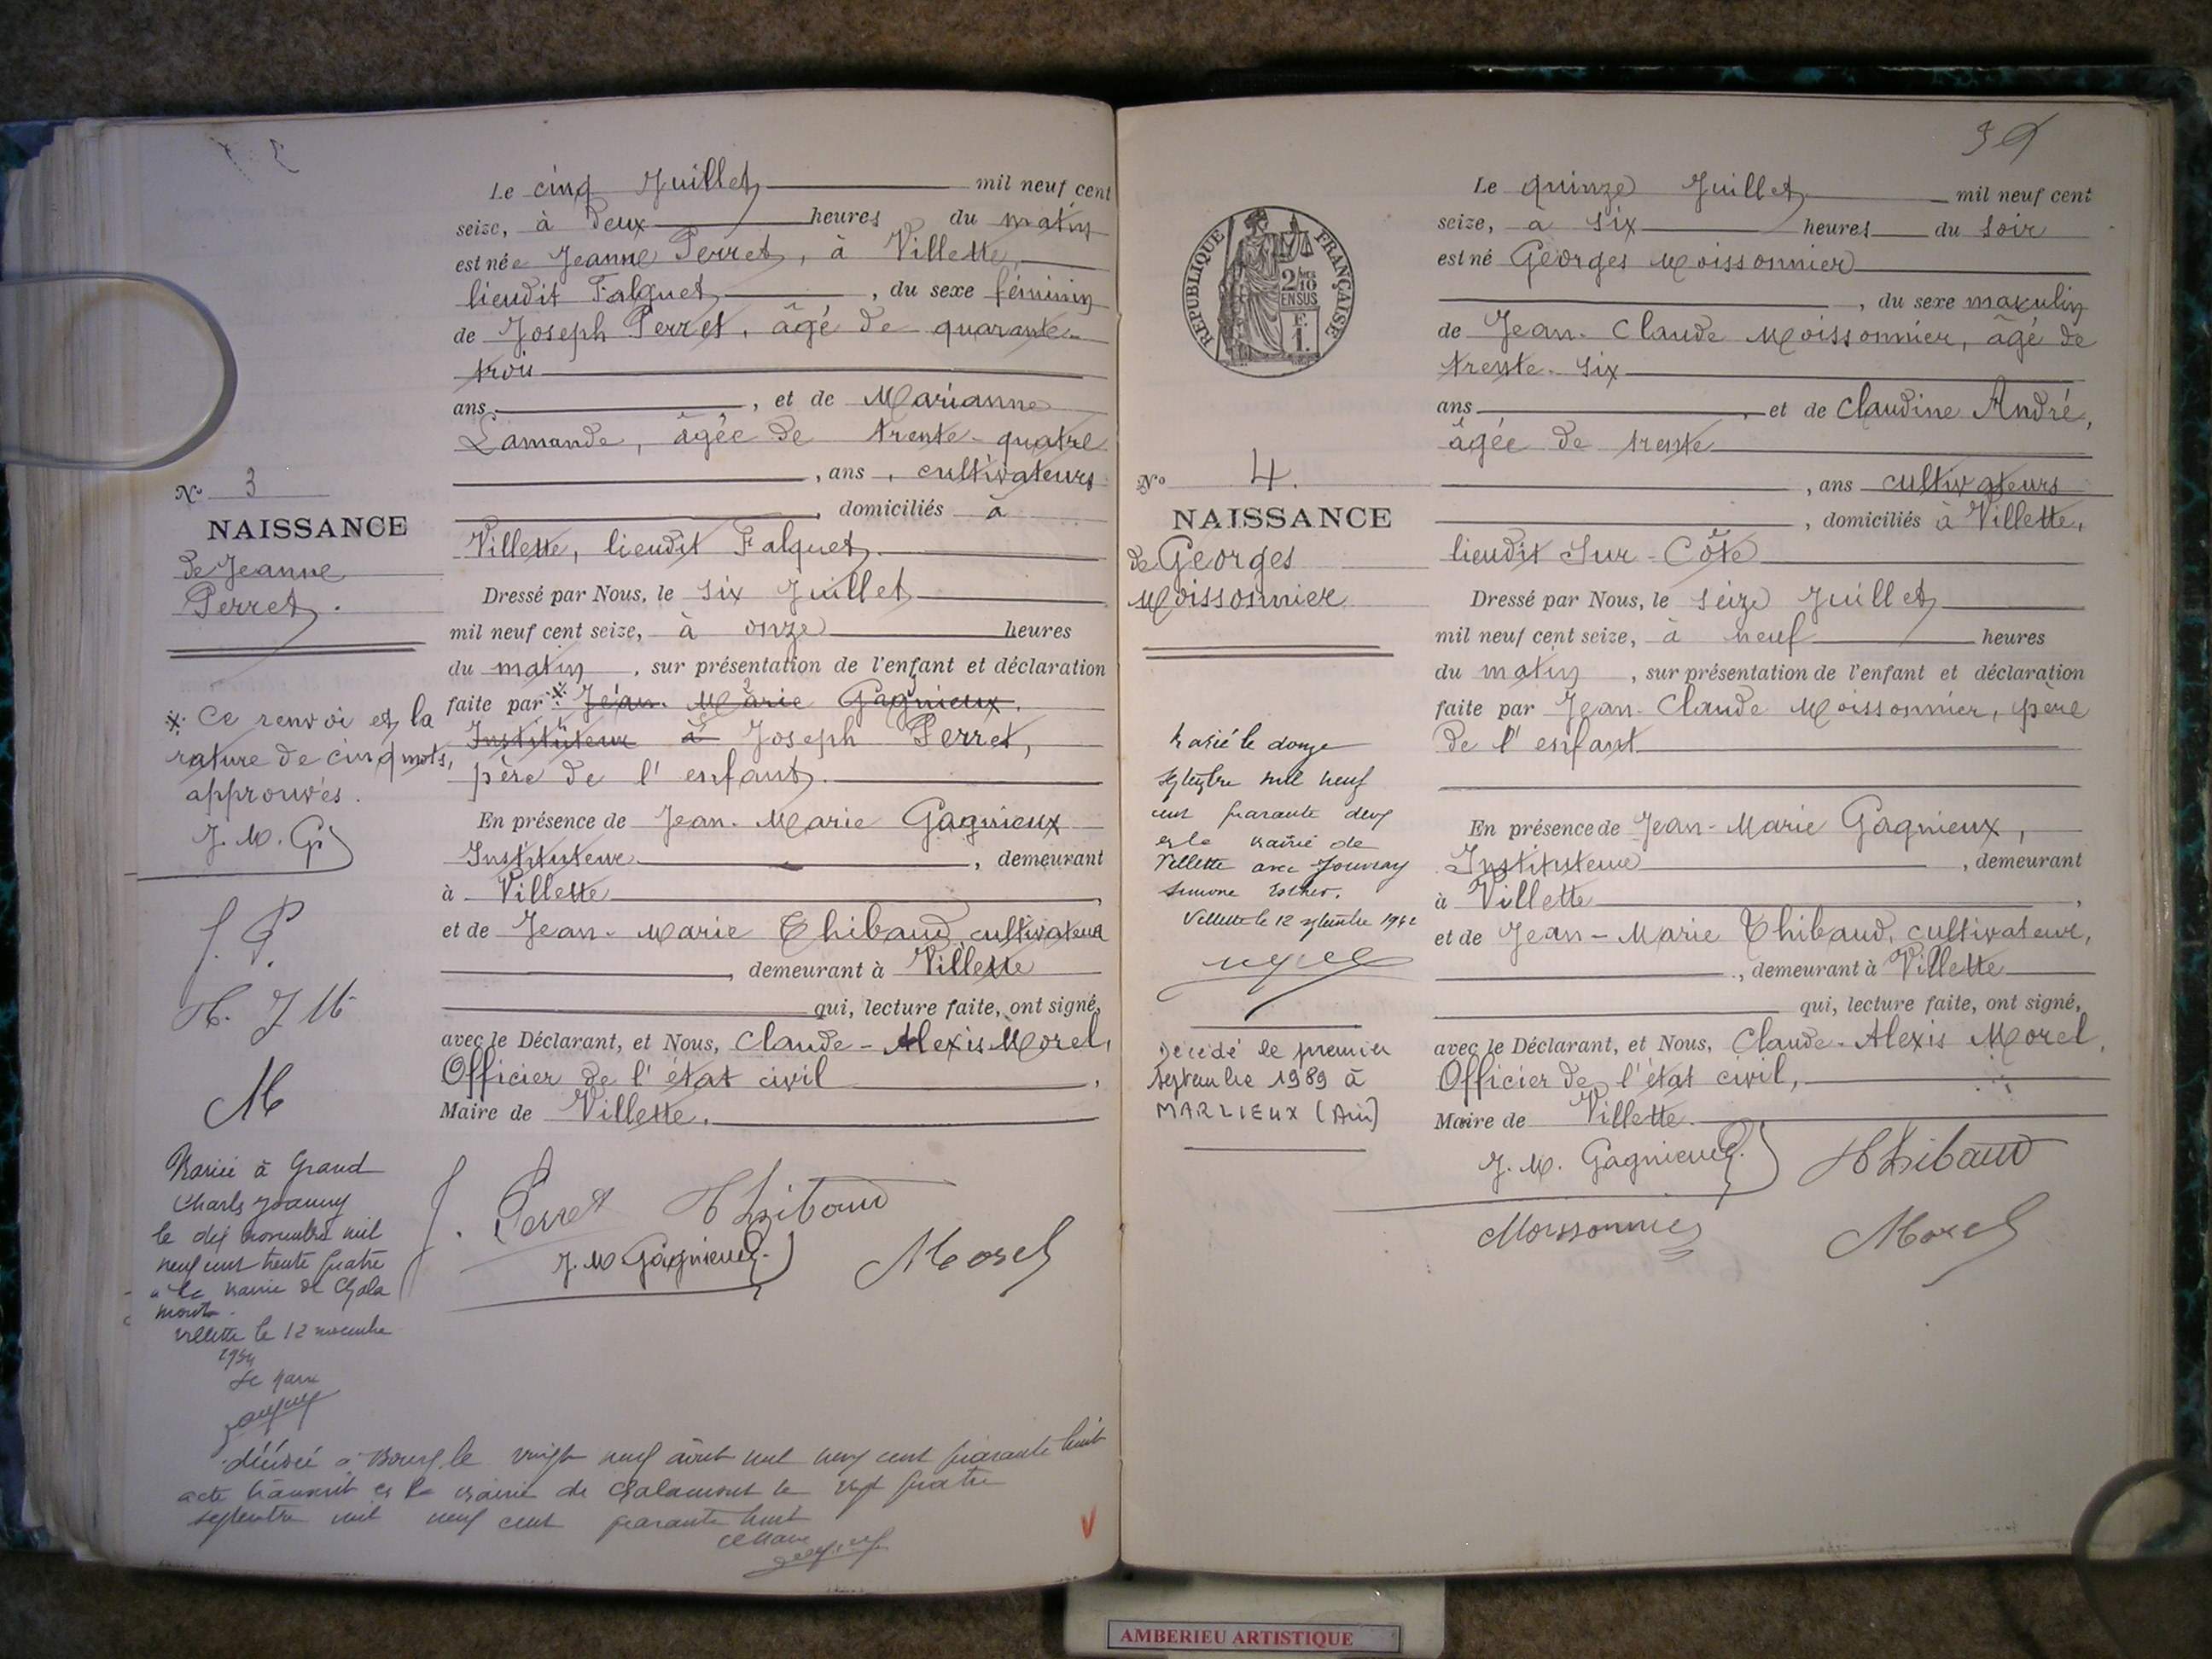 Le cinq Juillet mil neuf cent
seize, à deux heures du matin
est née Jeanne Perret, à Villette,
lieudit Falquet, du sexe féminin
de Joseph Perret, âgé de quarante-
trois
ans, et de Marianne
Lamande, âgée de trente-quatre
, ans, cultivateurs
, domiciliés à
Villette, lieudit Falquet.
Dressé par Nous, le six Juillet
mil neuf cent seize, à onze heures
du matin, sur présentation de l'enfant et déclaration
faite par Jean-Marie Gagnieux,
Instituteur à Joseph Perret,
père de l'enfant.
En présence de Jean-Marie Gagnieux
Instituteur, demeurant
à Villette,
et de Jean-Marie Thibaud, cultivateur
, demeurant à Villette
qui, lecture faite, ont signé,
avec le Déclarant, et Nous, Claude-Alexis Morel,
Officier de l'état civil,
Maire de Villette.
J. Perret Thibaud
J. M. Gagnieux Morel
No 3
NAISSANCE
de Jeanne
Perret.
Ce renvoi et la
rature de cinq mots,
approuvés.
J. M. G.
J. P.
Th. J M
M
Mariée à Grand
Charles Joanny
le dix novembre mil
neuf cent trente quatre
à la mairie de Chala
mont.
Villette le 12 novembre
1934
Le maire
décédée à Bourg le vingt neuf août mil neuf cent quarante huit
acte transcrit à la mairie de Chalamont le vingt quatre
septembre mil neuf cent quarante huit
Le Maire
V
39
RÉPUBLIQUE FRANÇAISE
2/10
EN SUS
F.
1.
No 4.
NAISSANCE
de Georges
Moissonnier
Marié le douze
septembre mil neuf
cent quarante deux
à la mairie de
Villette avec Jouvray
Simone Esther.
Villette le 12 septembre 1942
Décédé le premier
septembre 1989 à
MARLIEUX (Ain)
Le quinze Juillet mil neuf cent
seize, à six heures du soir
est né Georges Moissonnier
, du sexe masculin
de Jean-Claude Moissonnier, âgé de
trente-six
ans, et de Claudine André,
âgée de trente
, ans cultivateurs
, domiciliés à Villette,
lieudit Sur-Côte
Dressé par Nous, le seize Juillet
mil neuf cent seize, à neuf heures
du matin, sur présentation de l'enfant et déclaration
faite par Jean-Claude Moissonnier, père
de l'enfant
En présence de Jean-Marie Gagnieux,
Instituteur, demeurant
à Villette,
et de Jean-Marie Thibaud, cultivateur,
, demeurant à Villette
qui, lecture faite, ont signé,
avec le Déclarant, et Nous, Claude-Alexis Morel,
Officier de l'état civil,
Maire de Villette
J. M. Gagnieux Thibaud
Moissonnier Morel
AMBERIEU ARTISTIQUE